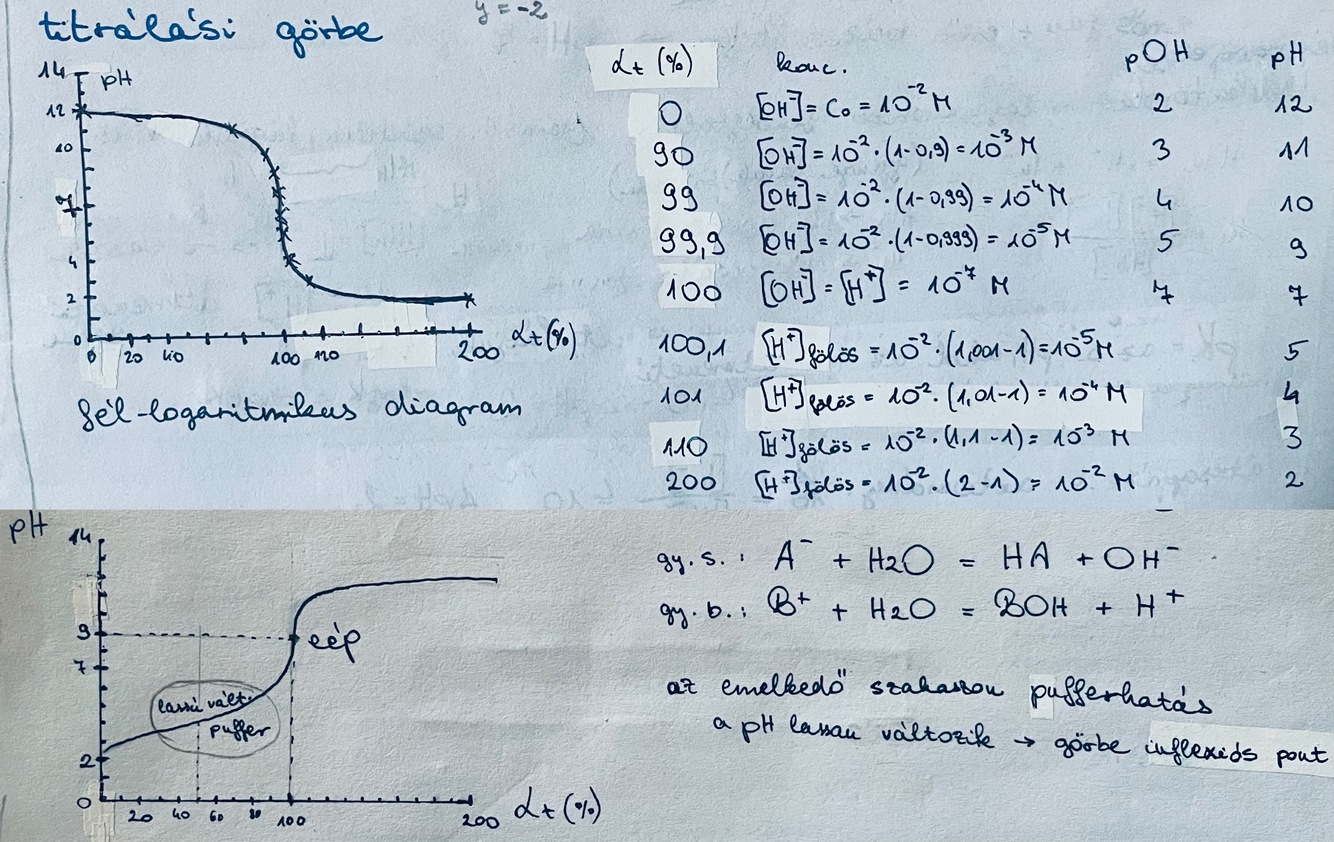 titrálási görbe
y = -2
14 pH
12
10
7
4
2
0
0 20 40 100 120 200 αt (%)
fél-logaritmikus diagram
αt (%) konc. pOH pH
0 [OH⁻] = C₀ = 10⁻² M 2 12
90 [OH⁻] = 10⁻² · (1-0,9) = 10⁻³ M 3 11
99 [OH⁻] = 10⁻² · (1-0,99) = 10⁻⁴ M 4 10
99,9 [OH⁻] = 10⁻² · (1-0,999) = 10⁻⁵ M 5 9
100 [OH⁻] = [H⁺] = 10⁻⁷ M 7 7
100,1 [H⁺]fölös = 10⁻² · (1,001-1) = 10⁻⁵ M 5
101 [H⁺]fölös = 10⁻² · (1,01-1) = 10⁻⁴ M 4
110 [H⁺]fölös = 10⁻² · (1,1-1) = 10⁻³ M 3
200 [H⁺]fölös = 10⁻² · (2-1) = 10⁻² M 2
pH
14
9
eép
7
lassú vált.
puffer
2
0
20 40 60 80 100 200 αt (%)
gy. s. : A⁻ + H₂O = HA + OH⁻
gy. b. : B⁺ + H₂O = BOH + H⁺
az emelkedő szakaszon pufferhatás
a pH lassan változik → görbe inflexiós pont